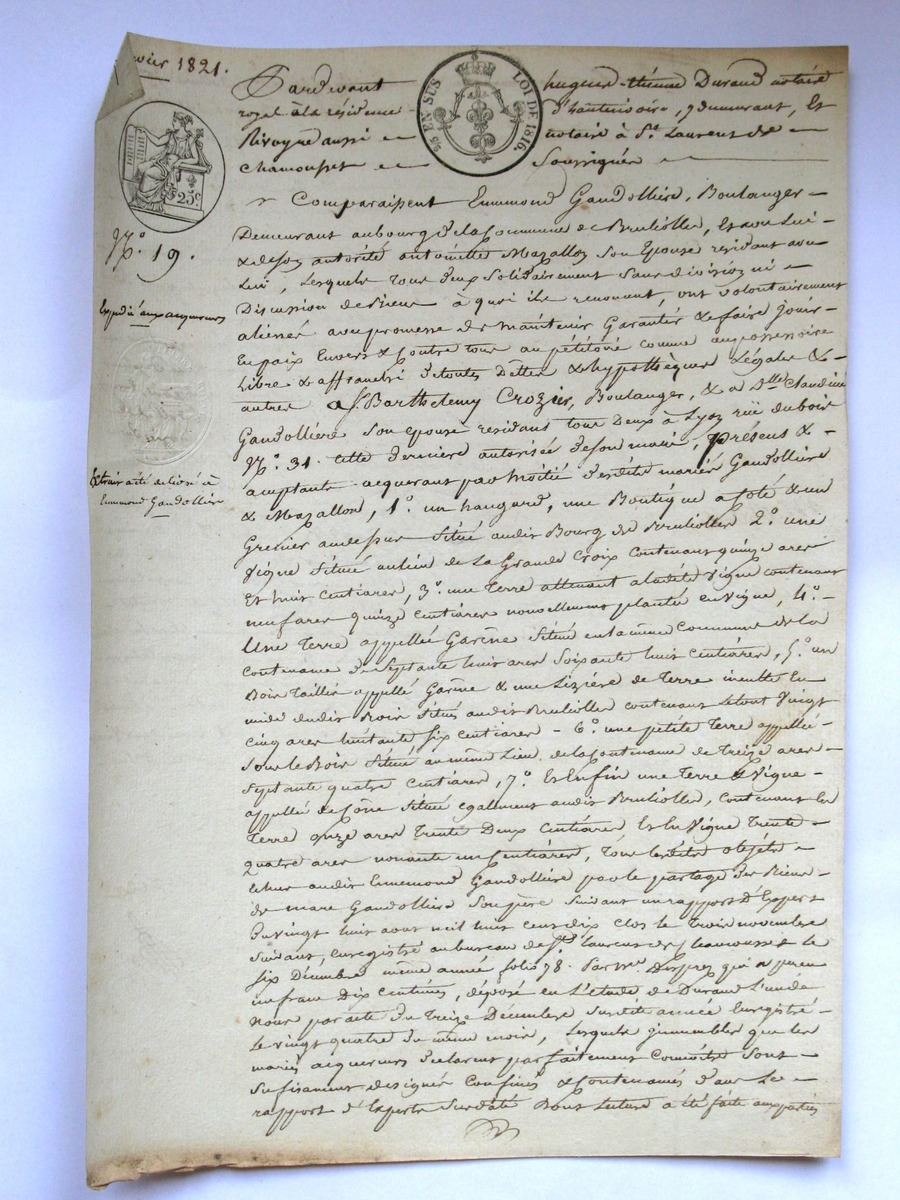 vier 1821.
Pardevant hugues étienne Durand notaire
royal à la résidence d'hauterivoire, y demeurant, Et
Rivoyre aussi notaire à St. Laurent de
Chamousset Soussignés
EN SUS LOI DE 1816.
25c
N.o 19.
Expédié aux acquereurs
Extrait a été délivré à
Emmond Gaudollière
Comparaissent Emmond Gaudollière, Boulanger
Demeurant au bourg de la Commune de Bruliolles, Et avec Lui
& de son autorité antoinette Mazallon Son Epouse résidant avec
Lui, Lesquels tous deux Solidairement Sans division ni
Discussion de biens à quoi ils renoncent, ont volontairement
aliéné avec promesse de maintenir Garantir & faire jouir
En paix Envers & Contre tous au pétitoire comme au possessoire
Libre & affranchi de toutes Dettes & hypothèques Légales &
autres à Sr. Barthelemy Crozier, Boulanger, & à Dlle Claudine
Gaudollière Son épouse résidant tous Deux à Lyon rue du bois
N.o 31. cette dernière autorisée de son mari, présens &
acceptants acquerant par Moitié desdits mariés Gaudollière
& Mazallon, 1.o un hangard, une Boutique à Coté & un
Grenier au dessus Situé audit Bourg de Brulioles 2.o une
Vigne Située au lieu de La Grande Croix Contenant quinze ares
Et huit Centiares, 3.o une Terre attenant à ladite Vigne contenant
neuf ares quinze centiares nouvellement plantée en Vigne, 4.o
Une Terre appellée Garenne Située en la même Commune de la
contenance de Septante huit ares Soixante huit Centiares, 5.o un
Bois taillis appellé Garenne & une Lizière de Terre inculte En
midi dudit Bois Situés audit Brulioles contenant le tout Vingt
Cinq ares huitante Six Centiares - 6.o une petite Terre appellée
Sous le Bois Située au même Lieu de la Contenance de Treize ares
Septante quatre Centiares, 7.o Et Enfin une Terre & Vigne
appellée de Située également audit Brulioles, contenant la
Terre onze ares Trente Deux Centiares Et la Vigne Trente
quatre ares nonante un Centiares, tous lesdits objets
échus audit Emmond Gaudollière par le partage des Biens
de marc Gaudollière Son père Suivant un rapport d'Expert
Du vingt huit aout mil huit Cent dix Clos le Trois novembre
Suivant, enregistré au bureau de St. Laurent de Chamousset le
Six Décembre même année folio 78. Par Mr. Desprez qui a perçu
un franc Dix centimes, déposé en L'étude de Durand L'un de
Nous par acte du Treize Décembre Susdite année Enregistré
Le vingt quatre du même mois, Lesquels immeubles que les
mariés acquereurs déclarent parfaitement Connoître Sont
Suffisament désignés Confinés & Contenancés dans Le
rapport d'Experts Susdaté Dont Lecture a été faite aux parties